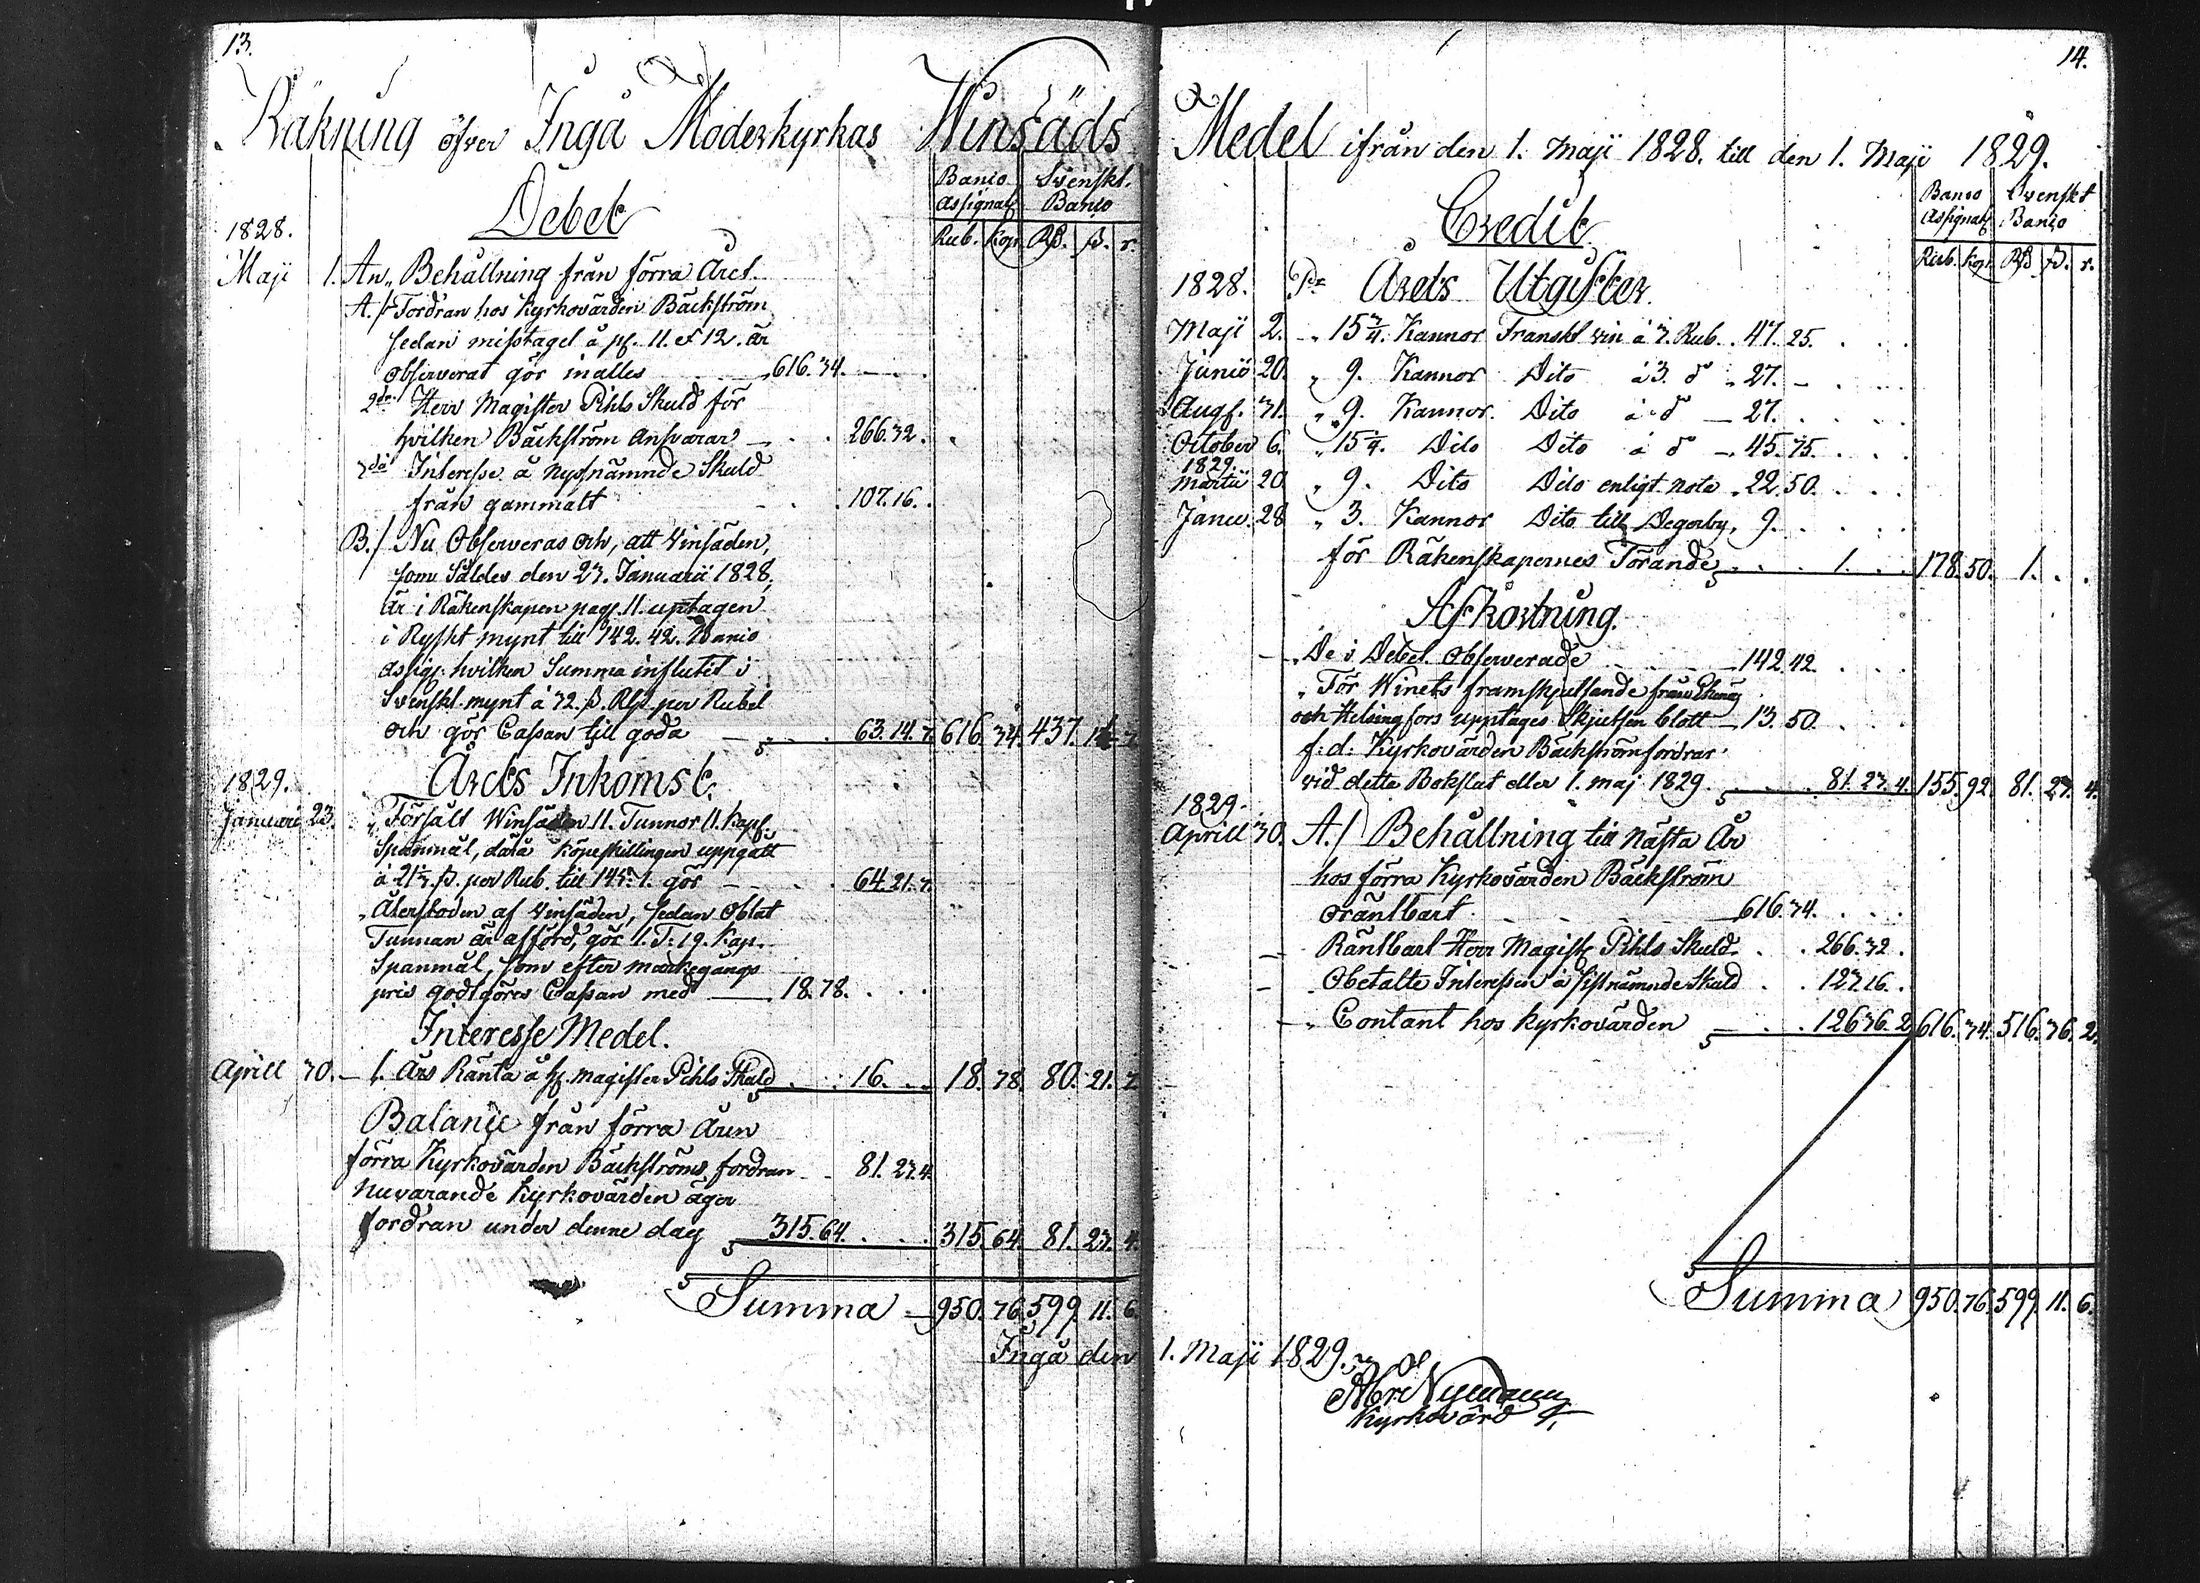 13.
Räkning öfver Ingå Moderkyrkas Winsäds
Debet
Banco Assignat: Svenskt Banco
Rub. Kop. Rß. ß. r.
1828.
Maji 1. An„ Behållning från förra Året.
A./ Fordran hos Kyrkovärden Bäckström
sedan misstaget å pg. 11 & 12. är
observerat gör inalles 616.34.
2do Herr Magister Pihls Skuld för
hvilken Bäckström Ansvarar 266.32.
3dio Interesse å nyssnämnde Skuld
från gammalt 107.16.
B./ Nu Observeras och, att Vinsäden,
som Såldes den 23. Januarii 1828,
är i Räkenskapen pag. 11. uptagen
i Ryskt mynt till 142. 42. Banco
assig: hvilken Summa influtit i
Svenskt mynt á 32. ß. Rgs per Rubel
och gör Cassan till goda 63.14.7. 616. 34. 437. 14. 7.
Årets Inkomst.
1829.
Januari 23. „ Försålt Winsäden 11. Tunnor 11. Kap:
Spanmål, dåra köpeskillingen uppgått
á 21⅓. ß. per Rub. till 145. 1. gör 64. 21. 7.
„ Återstoden af Vinsäden, sedan Oblat
Tunnan är afförd, gör 1. T: 19. Kap.
Spanmål, som efter markegångs
pris godtgöres Cassan med 18.78.
Interesse Medel.
Aprill 30. 1. Års Ränta å H: Magister Pihls Skuld 16. 18. 78. 80. 21. 7.
Balance från förra Åren
förra Kyrkovärden Bäckströms fordran 81. 23. 4.
Nuvarande Kyrkovärden äger
fordran under denne dag 315.64. 315. 64. 81. 23. 4.
Summa 950. 76. 599. 11. 6.
Ingå den
14.
Medel ifrån den 1. Maji 1828. till den 1. Maji 1829.
Credit
Banco Assignat: Svenskt Banco
Rub. Kop. Rß. ß. r.
1828. Pr Årets Utgifter.
Maji 2. „ 15¾. Kannor Franskt vin á 3. Rub. 47. 25.
Junii 20. „ 9. Kannor Dito á 3. do 27.
Aug. 31. „ 9. Kannor. Dito á do 27.
October 6. „ 15¼. Dito Dito á do 45. 75.
1829.
Martii 20. „ 9. Dito Dito enligt nota 22. 50.
Janu. 28 „ 3. Kannor Dito till Degerby, 9.
för Räkenskapernes Förande 1. 178. 50. 1.
Afkortning.
„ De i Debet Observerade 142. 42.
„ För Winets framskjutsande från Ekenäs
och Helsingfors upptages Skjutsen blott 13. 50.
f: d: Kyrkovärden Bäckström fordrar
vid detta Bokslut eller 1. maj 1829. 81. 23. 4. 155. 92. 81. 23. 4.
1829.
Aprill 30. A./ Behållning till nästa År
hos förra Kyrkovärden Bäckström
oräntbart 616. 34.
Räntbart Herr Magist: Pihls Skuld 266. 32.
Obetalte Interessen å sistnämnde Skuld 123.16.
„ Contant hos Kyrkovärden 126 36. 2. 616. 34. 516. 36. 2.
Summa 950. 76. 599. 11. 6.
1. Maji 1829.
Abr Nyman
Kyrkovärd